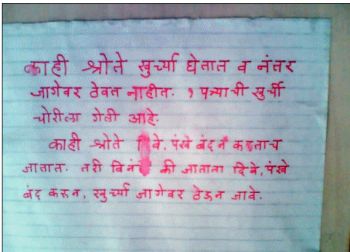 काही श्रोते खुर्च्या घेतात व नंतर
जागेवर ठेवत नाहीत. १ पत्र्याची खुर्ची
चोरीला गेली आहे.
काही श्रोते दिवे, पंखे बंद न करताच
जातात. तरी विनंती की जाताना दिवे, पंखे
बंद करून, खुर्च्या जागेवर ठेऊन जावे.